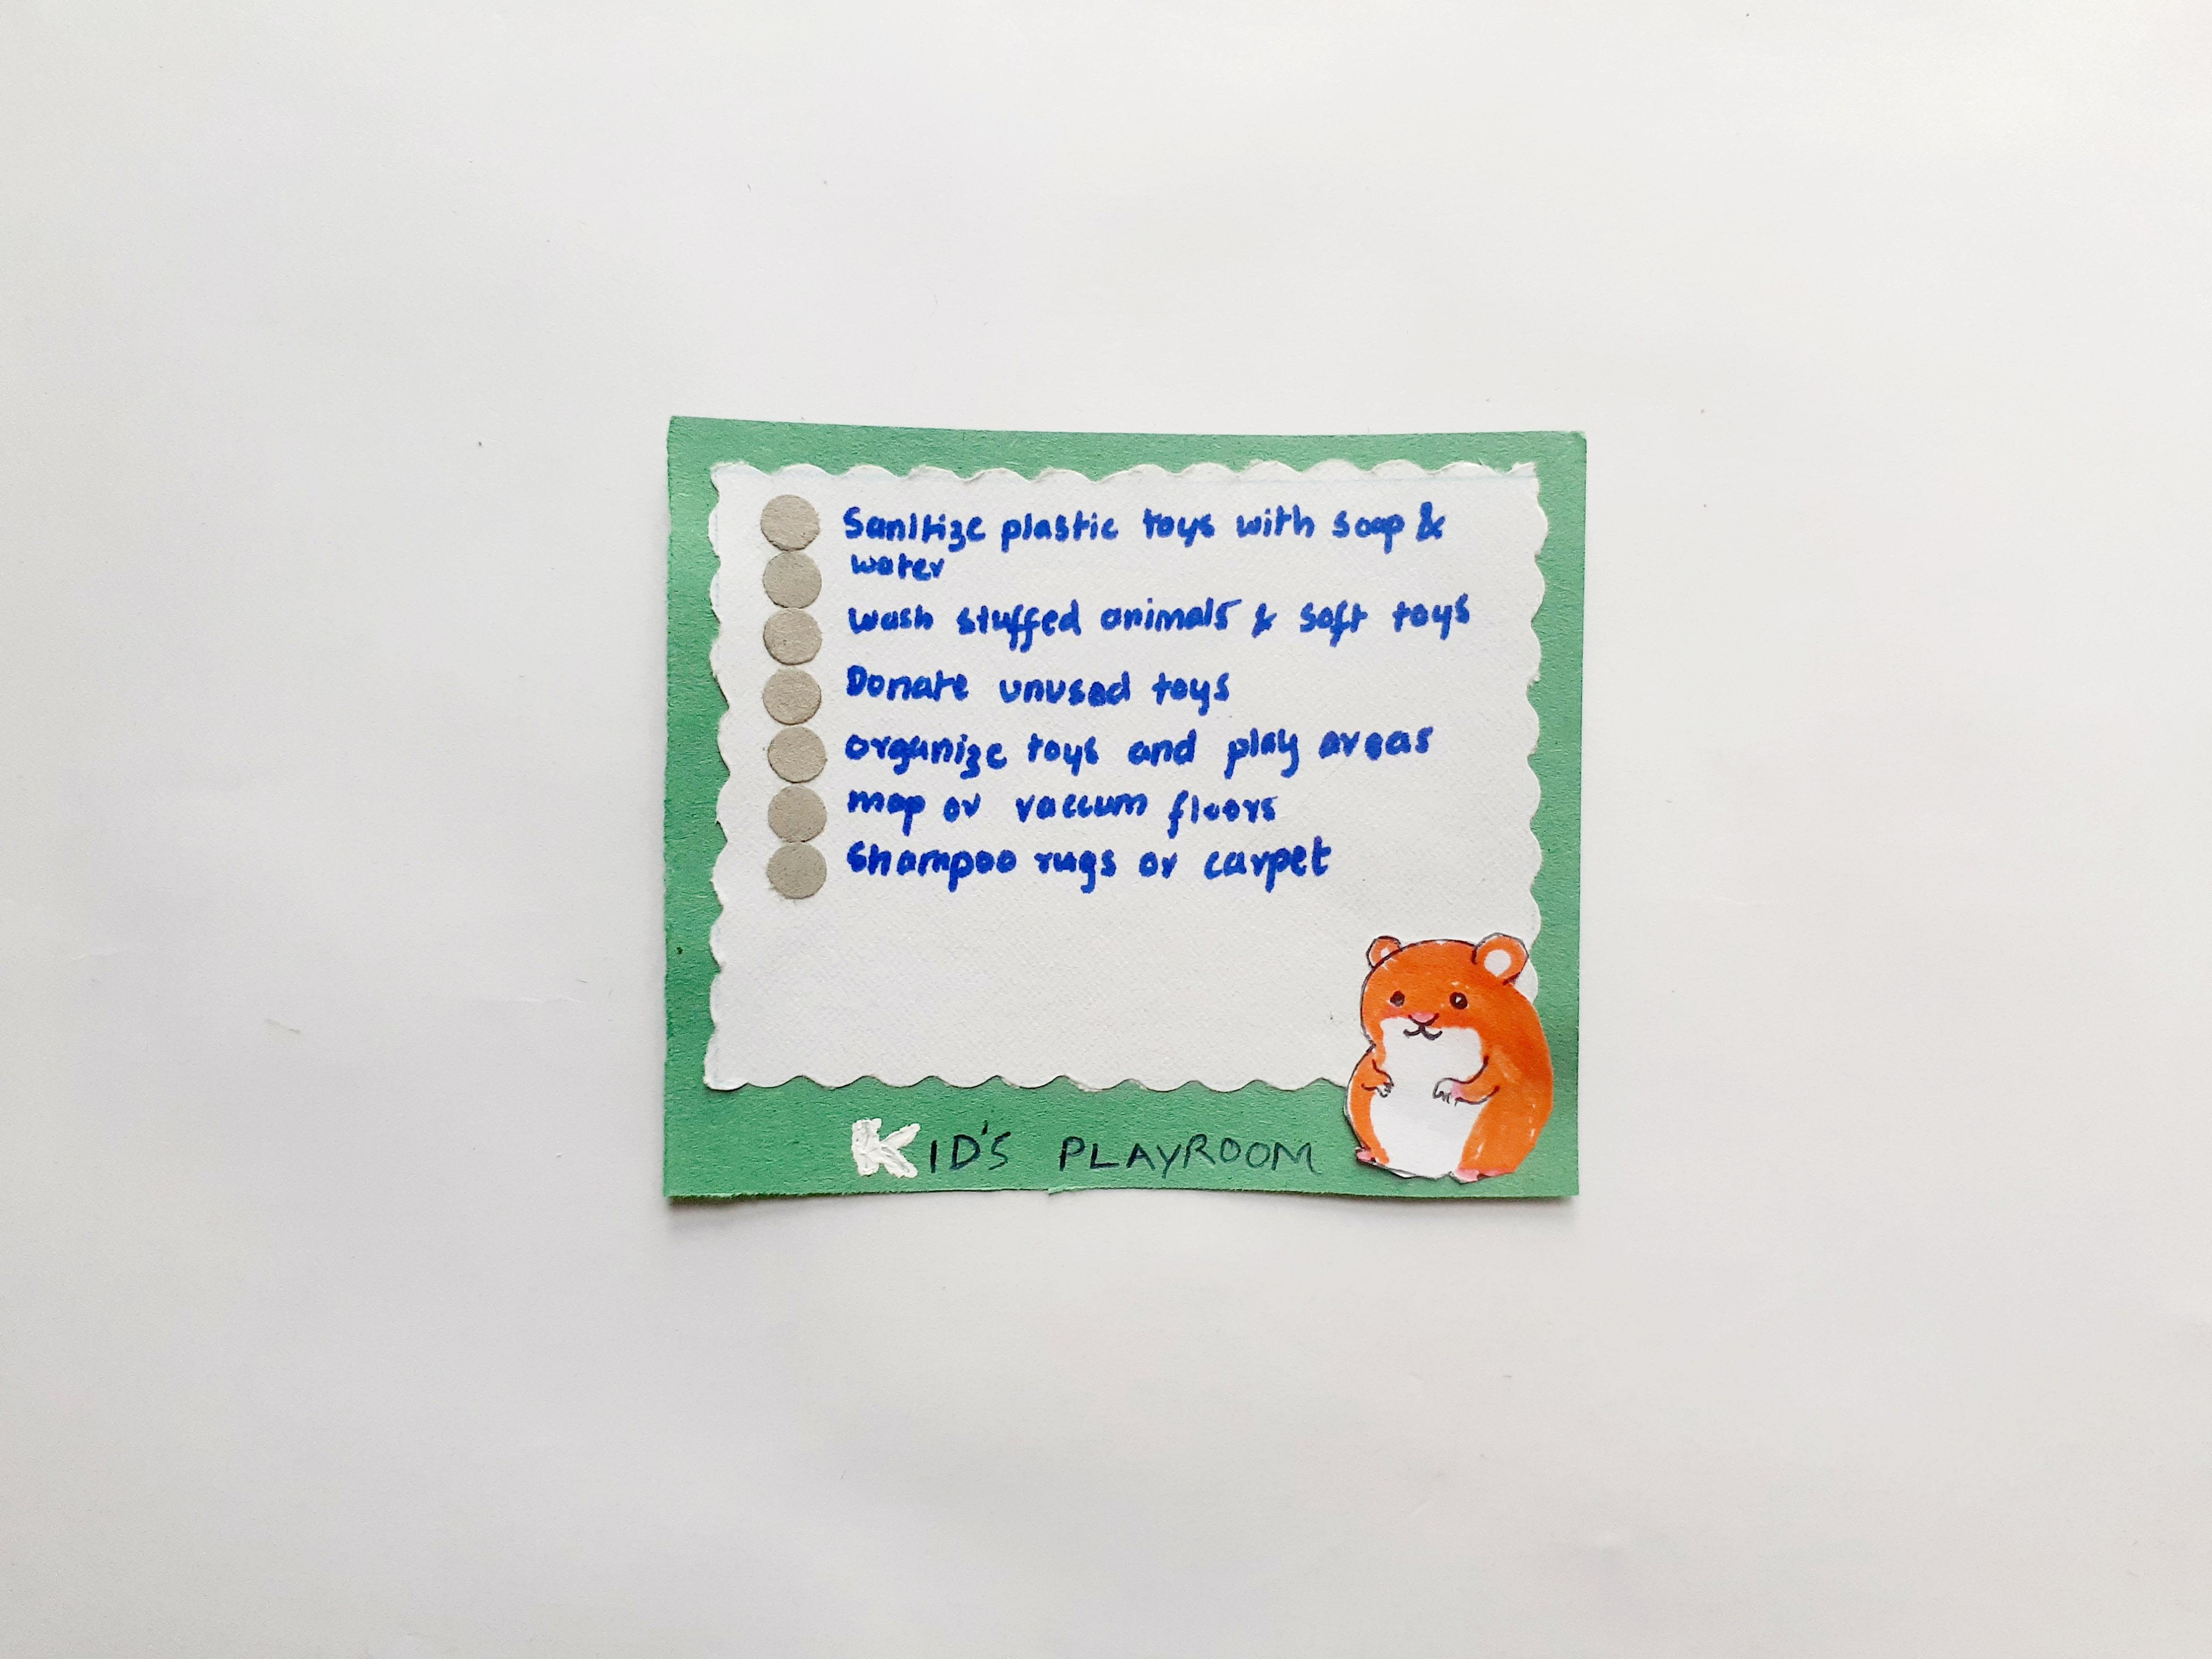 Sanitize plastic toys with soap &
water
wash stuffed animals & soft toys
Donate unused toys
organize toys and play areas
mop or vaccum floors
Shampoo rugs or carpet
KID'S PLAYROOM